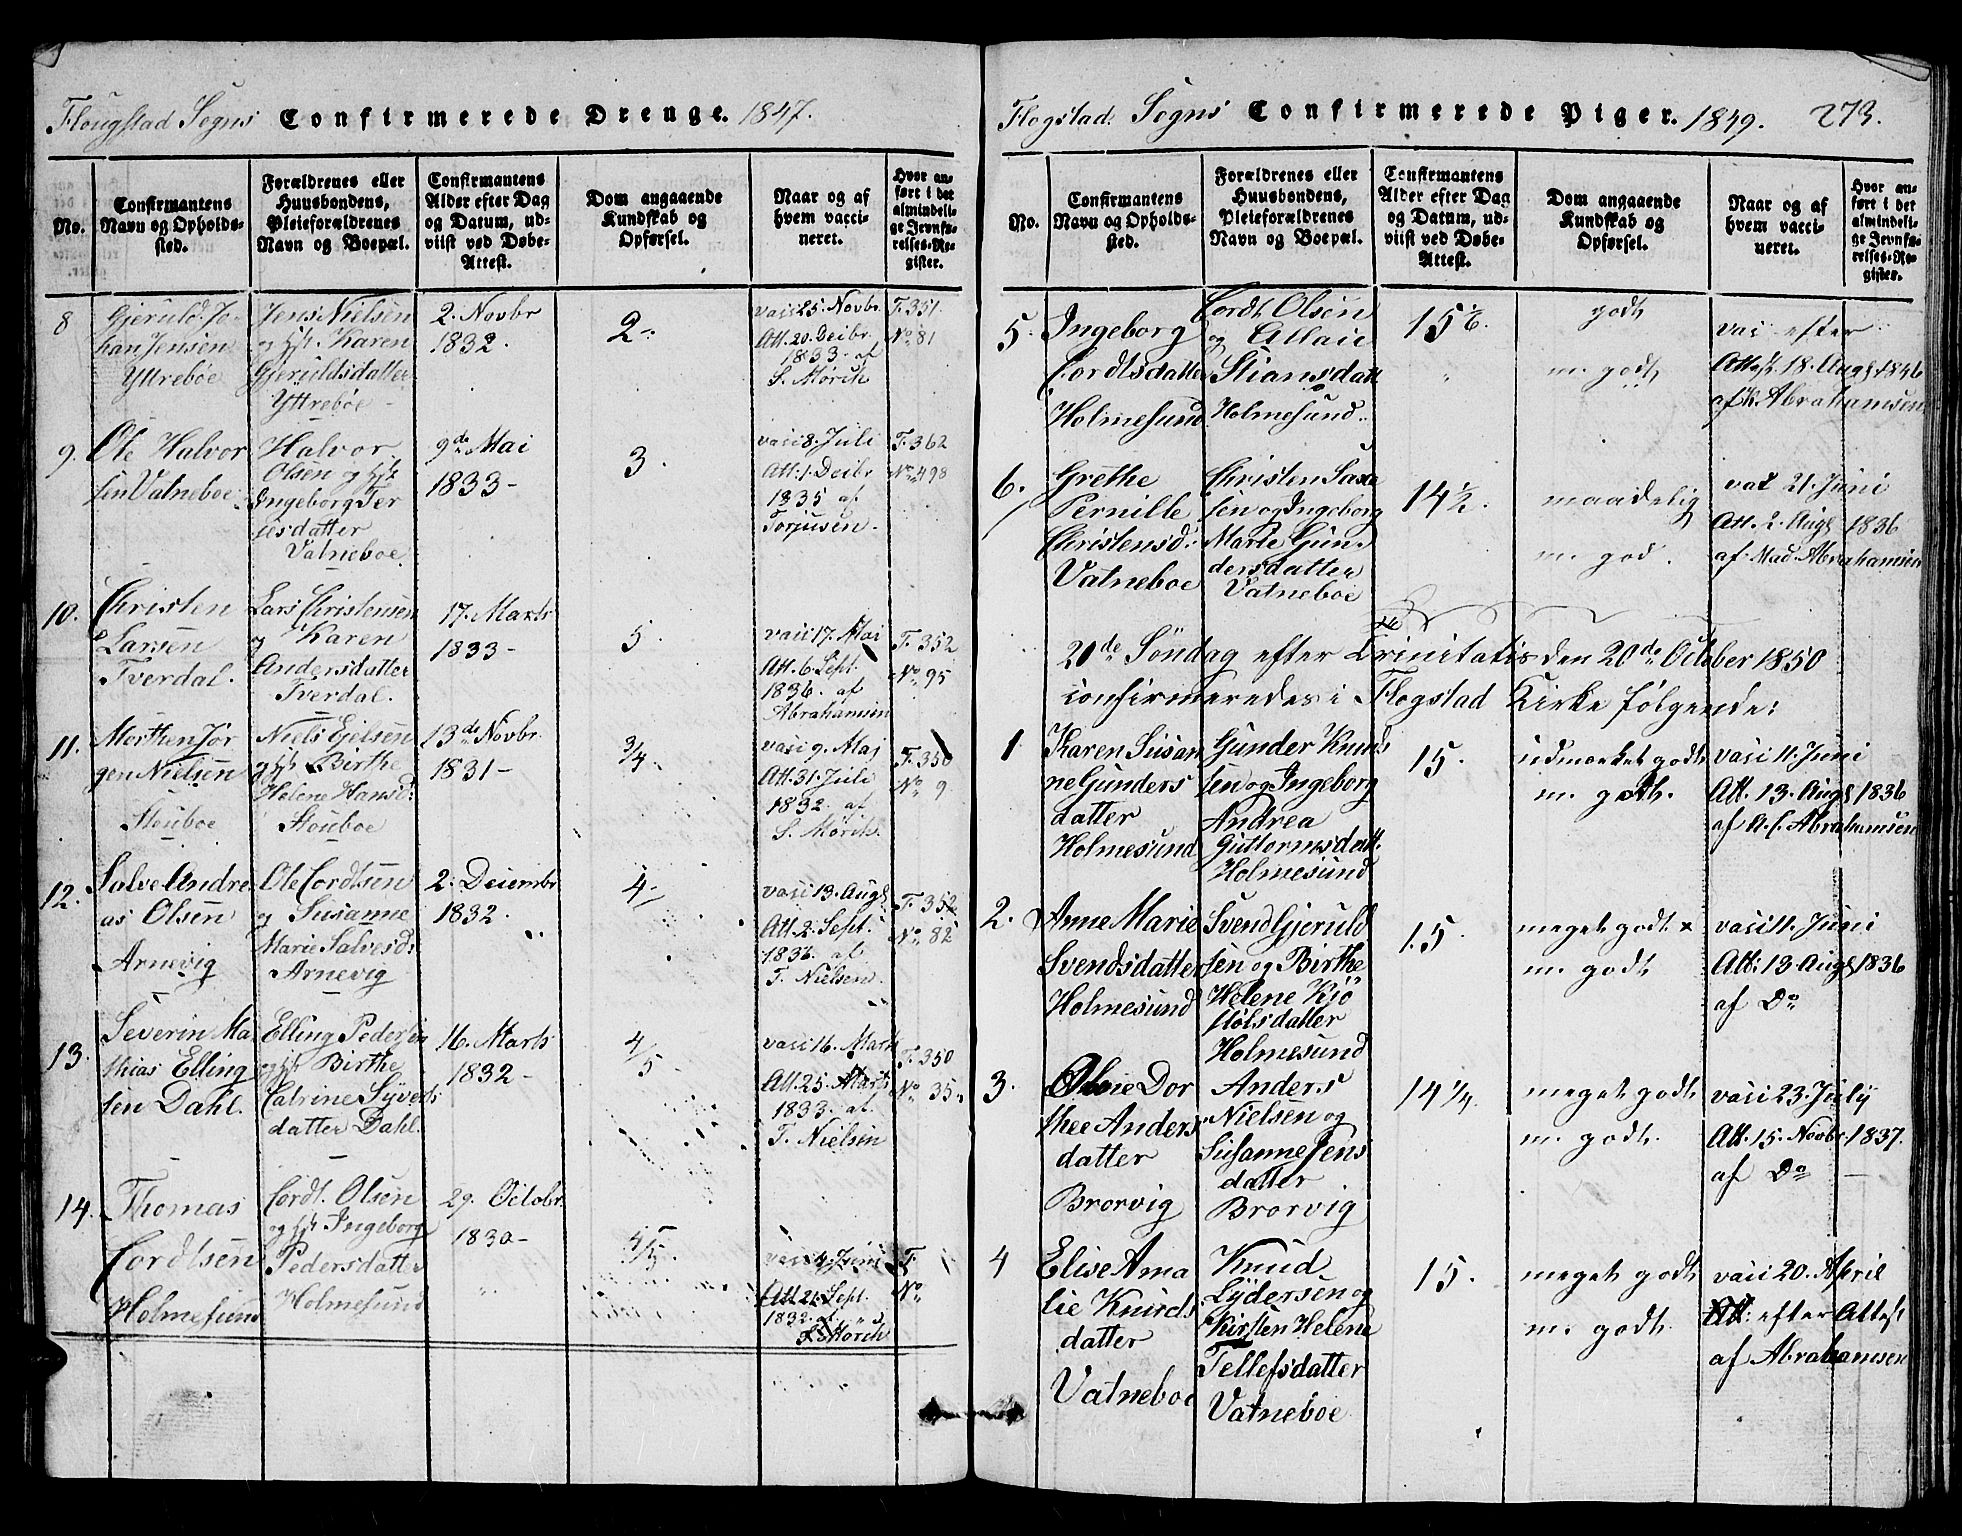 Flougstad Sogns Confirmerede Drenge. 1847.
No.
Confirmantens
Navn og Opholds-
sted.
Forældrenes eller
Huusbondens,
Pleieforældrenes
Navn og Boepæl.
Confirmantens
Alder efter Dag
og Datum, ud-
viist ved Døbe-
Attest.
Dom angaaende
Kundskab og
Opførsel.
Naar og af
hvem vacci-
neret.
Hvor an-
ført i det
almindeli-
ge Jevnfø-
relses-Re-
gister.
8
Gjeruld Jo-
han Jensen
Yttrebøe
Jens Nielsen
og Karen
Gjeruldsdatter
Yttrebøe
2. Novbr
1832.
2
25. Novbr
Att. 20. Decbr
1833. af
S. Mørch
F. 351.
No. 81
9.
Ole Halvor
sen Vatneboe
Halvor
Olsen og
Ingeborg Ter
jesdatter
Vatneboe.
9de Mai
1833-
3.
vacc 8. Juli
Att. 1. Decbr
1835 af
Torjusen.
F. 362
No. 498
10.
Christen
Larsen
Tverdal.
Lars Christensen
og Karen
Andersdatter
Tverdal.
17. Marts
1833-
5.
vacc 17. Mai
Att. 6. Sept.
1836. af
Abrahamsen
F. 352
No. 95
11.
Morthen Jør
gen Nielsen
Stouboe
Niels Ejelsen
og Birthe
Helene Hansd:
Stouboe
13de Novbr.
1831-
3/4.
vacc 9. Maj
Att. 31. Juli
1832. af
S. Mørch.
F. 350
No. 9
12.
Salve Andre
as Olsen
Arnevig
Ole Cordtsen
og Susanne
Marie Salvesd:
Arnevig
2. Decembr
1832.
4-
vacc 13. Aug
Att. 2. Sept.
1836. af
T. Nielsen.
F. 352
No. 82
13.
Severin Ma
thias Elling
sen Dahl.
Elling Pedersen
og Birthe
Catrine Syverts
datter Dahl.
16. Marts
1832-
4/5
vacc 16. Marts
Att. 25. Marts
1833. af.
T. Nielsen
F. 350
No. 35.
14.
Thomas
Cordtsen
Holmesund
Cordt. Olsen
og Ingeborg
Pedersdatter
Holmesund
29. Octobr.
1830-
4/5.
vacc 4. Juni
Att. 21. Sept.
1832. af
S. Mørch
F.
No.
Flogstad. Sogns Confirmerede Piger. 1849. 273.
No.
Confirmantens
Navn og Opholds-
sted.
Forældrenes eller
Huusbondens,
Pleieforældrenes
Navn og Boepæl.
Confirmantens
Alder efter Dag
og Datum, ud-
viist ved Døbe-
Attest.
Dom angaaende
Kundskab og
Opførsel.
Naar og af
hvem vacci-
neret.
Hvor an-
ført i det
almindeli-
ge Jevnfø-
relses-Re-
gister.
5.
Ingeborg
Cordtsdatter
Holmesund
Cordt Olsen
og
Stiansdatt
Holmesund.
15
godt
m. godt
vac efter
Att. 18. Aug. 1846
af K. Abrahamsen
6.
Grethe
Pernille
Christensd:
Vatneboe
Christen Saxe
sen og Ingeborg
Marie Gun-
dersdatter
Vatneboe
14 1/2.
maadelig
m. god.
vac 21. Juni
Att. 2. Aug 1836
af Mad. Abrahamsen
21de Søndag efter Trinitatis den 20de October 1850
confirmeredes i Flogstad Kirke følgende:
1
Karen Susan
ne Gunders
datter
Holmesund
Gunder Knud
sen og Ingeborg
Andrea
Guttormsdatt.
Holmesund
15.
udmærket godt
m. godt.
vacc 11. Juni
Att. 13. Aug 1836
af A. C. Abrahamsen
2.
Anne Marie
Svendsdatter
Holmesund
Svend Gjeruld
sen og Birthe
Helene Kjø
stolsdatter
Holmesund
15.
meget godt x
m. godt
vacc 11. Juni
Att: 13. Aug 1836
af Do
3.
Dor
thee Anders
datter
Brorvig
Anders
Nielsen og
Susanne Jens
datter
Brorvig
14 1/4.
meget godt
m. godt.
vacc 23. July
Att. 15. Novbr 1837.
af Do
4
Elise Ama
lie Knuds
datter
Vatneboe
Knud
Lydersen og
Kirsten Helene
Tellefsdatter
Vatneboe
15.
meget godt
m. godt
vacc 20. April
Att: efter Attest
af Abrahamsen